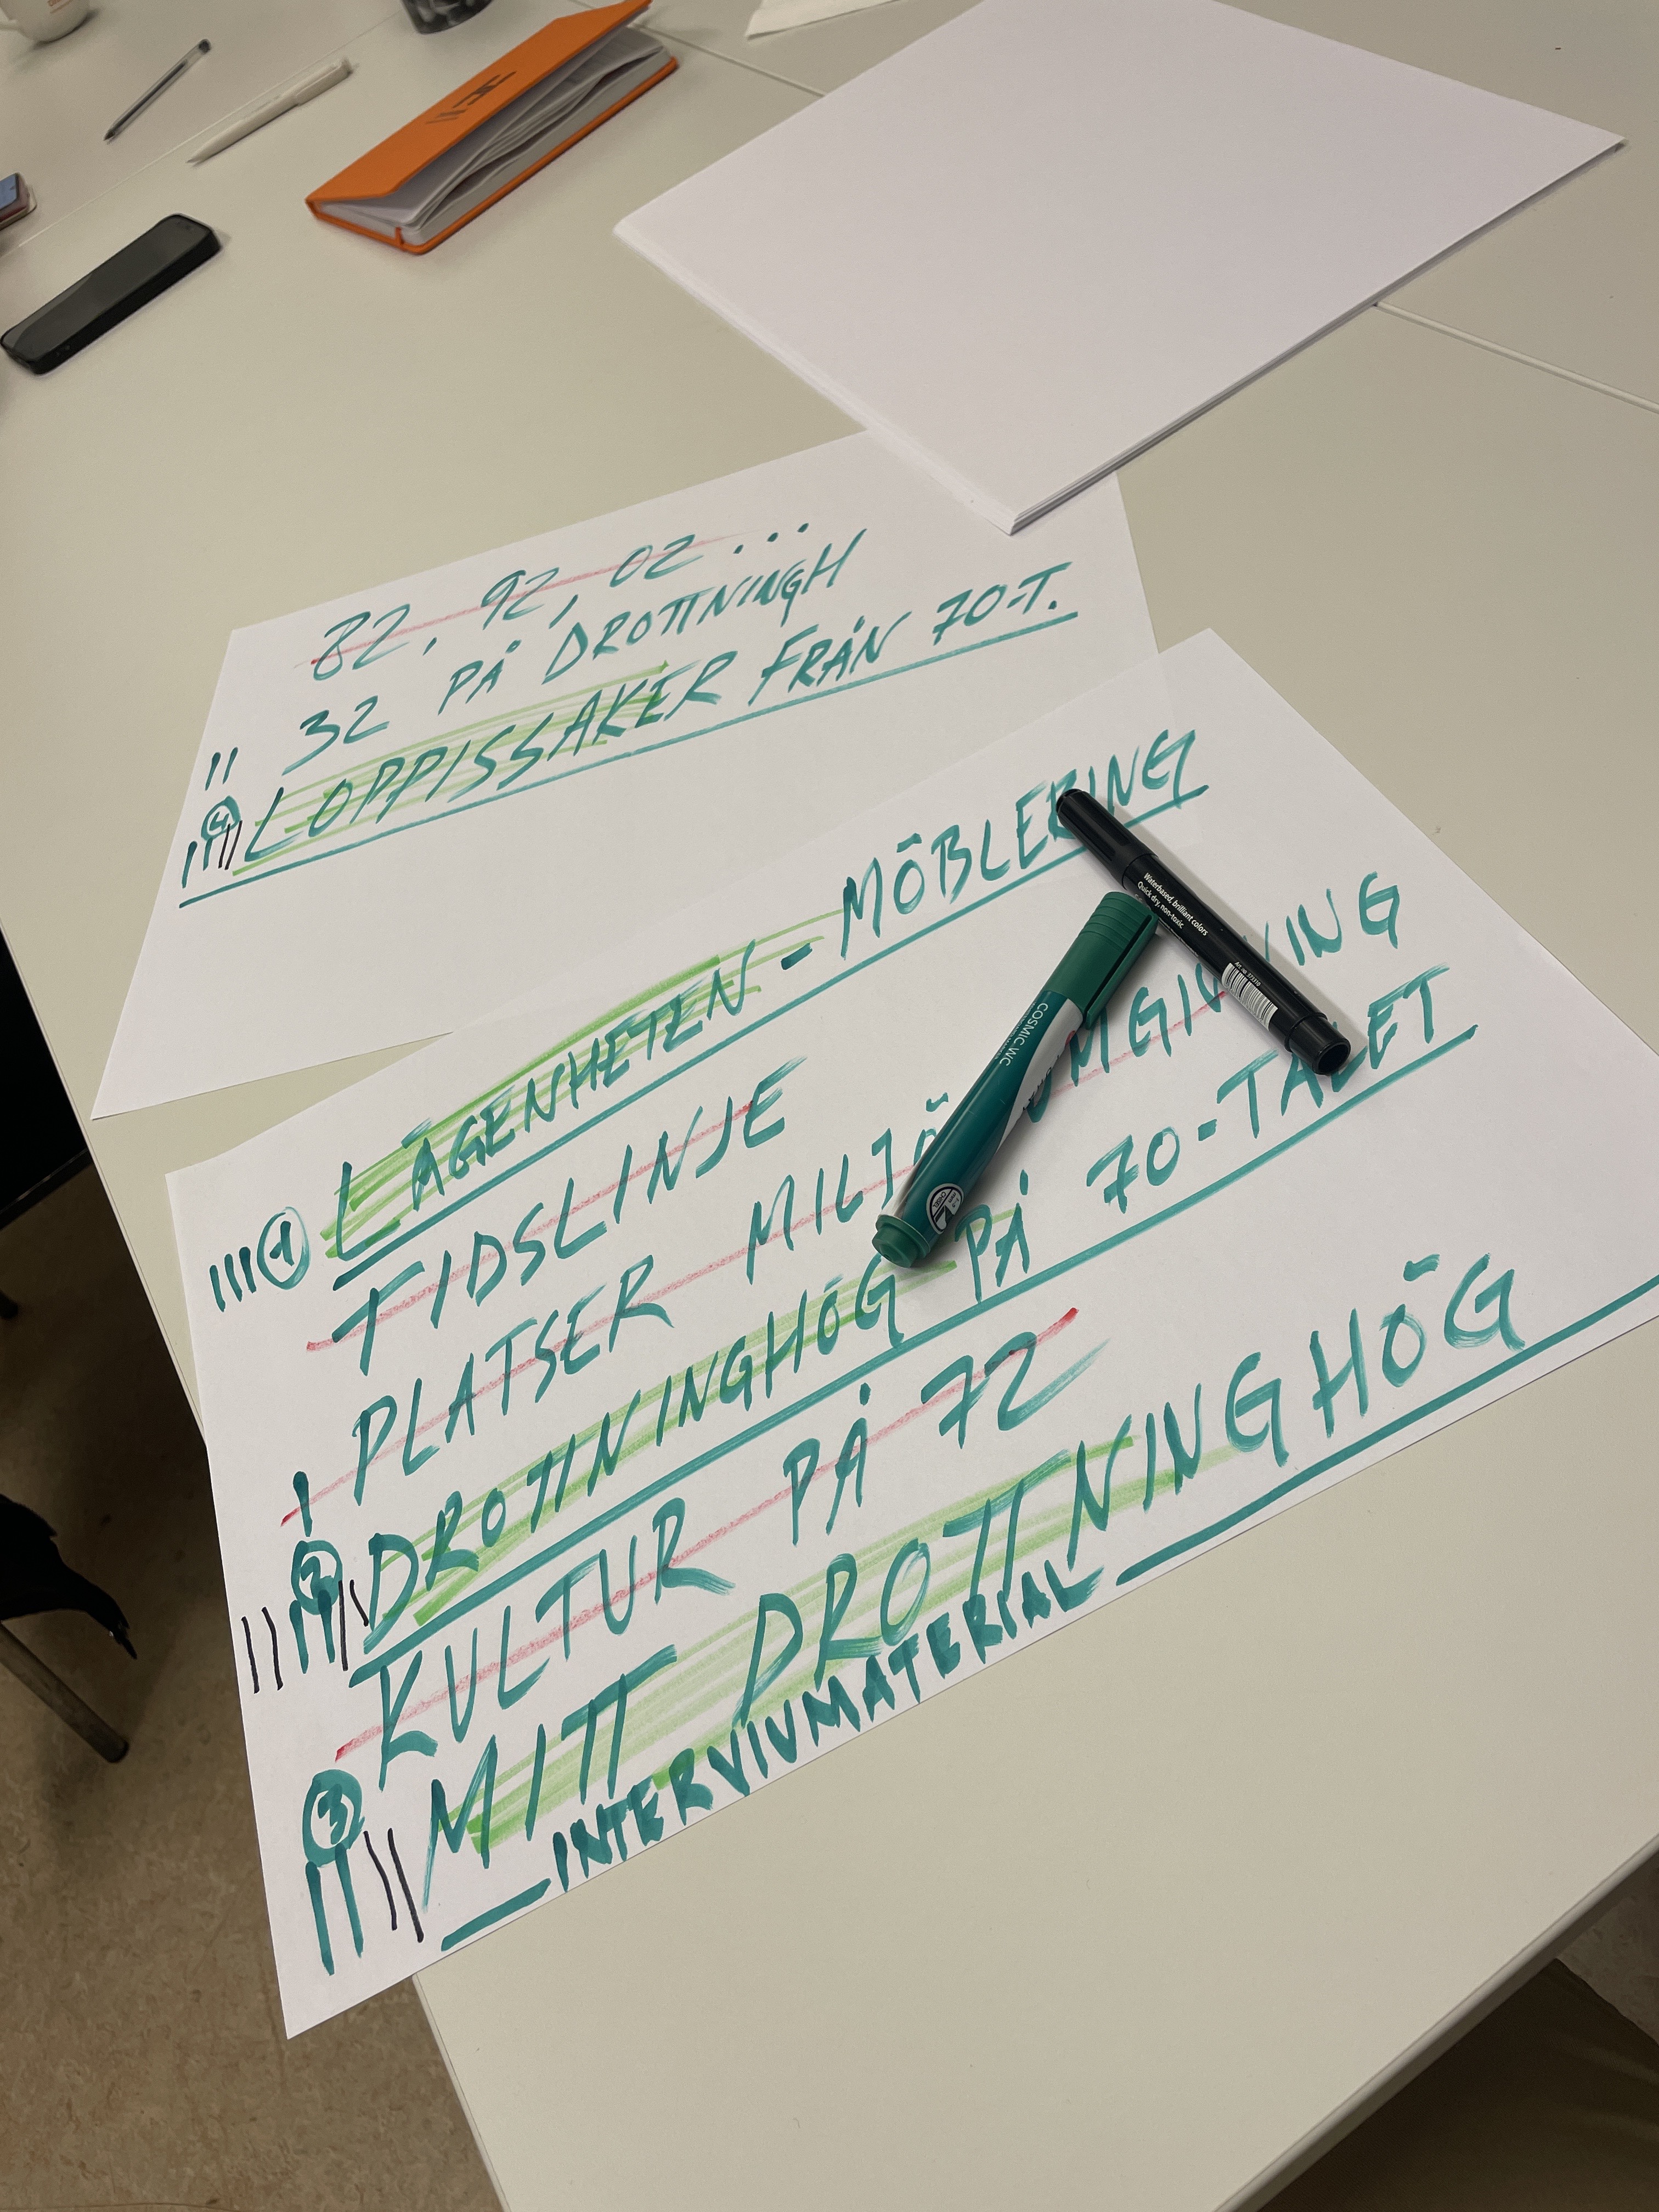 82, 92, 02...
32 PÅ DROTTNINGH
4 LOPPISSAKER FRÅN 70-T.
1 LÄGENHETEN - MÖBLERING
TIDSLINJE
PLATSER MILJÖ OMGIVNING
2 DROTTNINGHÖG PÅ 70-TALET
KULTUR PÅ 72
3 MITT DROTTNINGHÖG
INTERVIUMATERIAL
Waterbased, brilliant colors
Quick dry, non-toxic
COSMIC WC